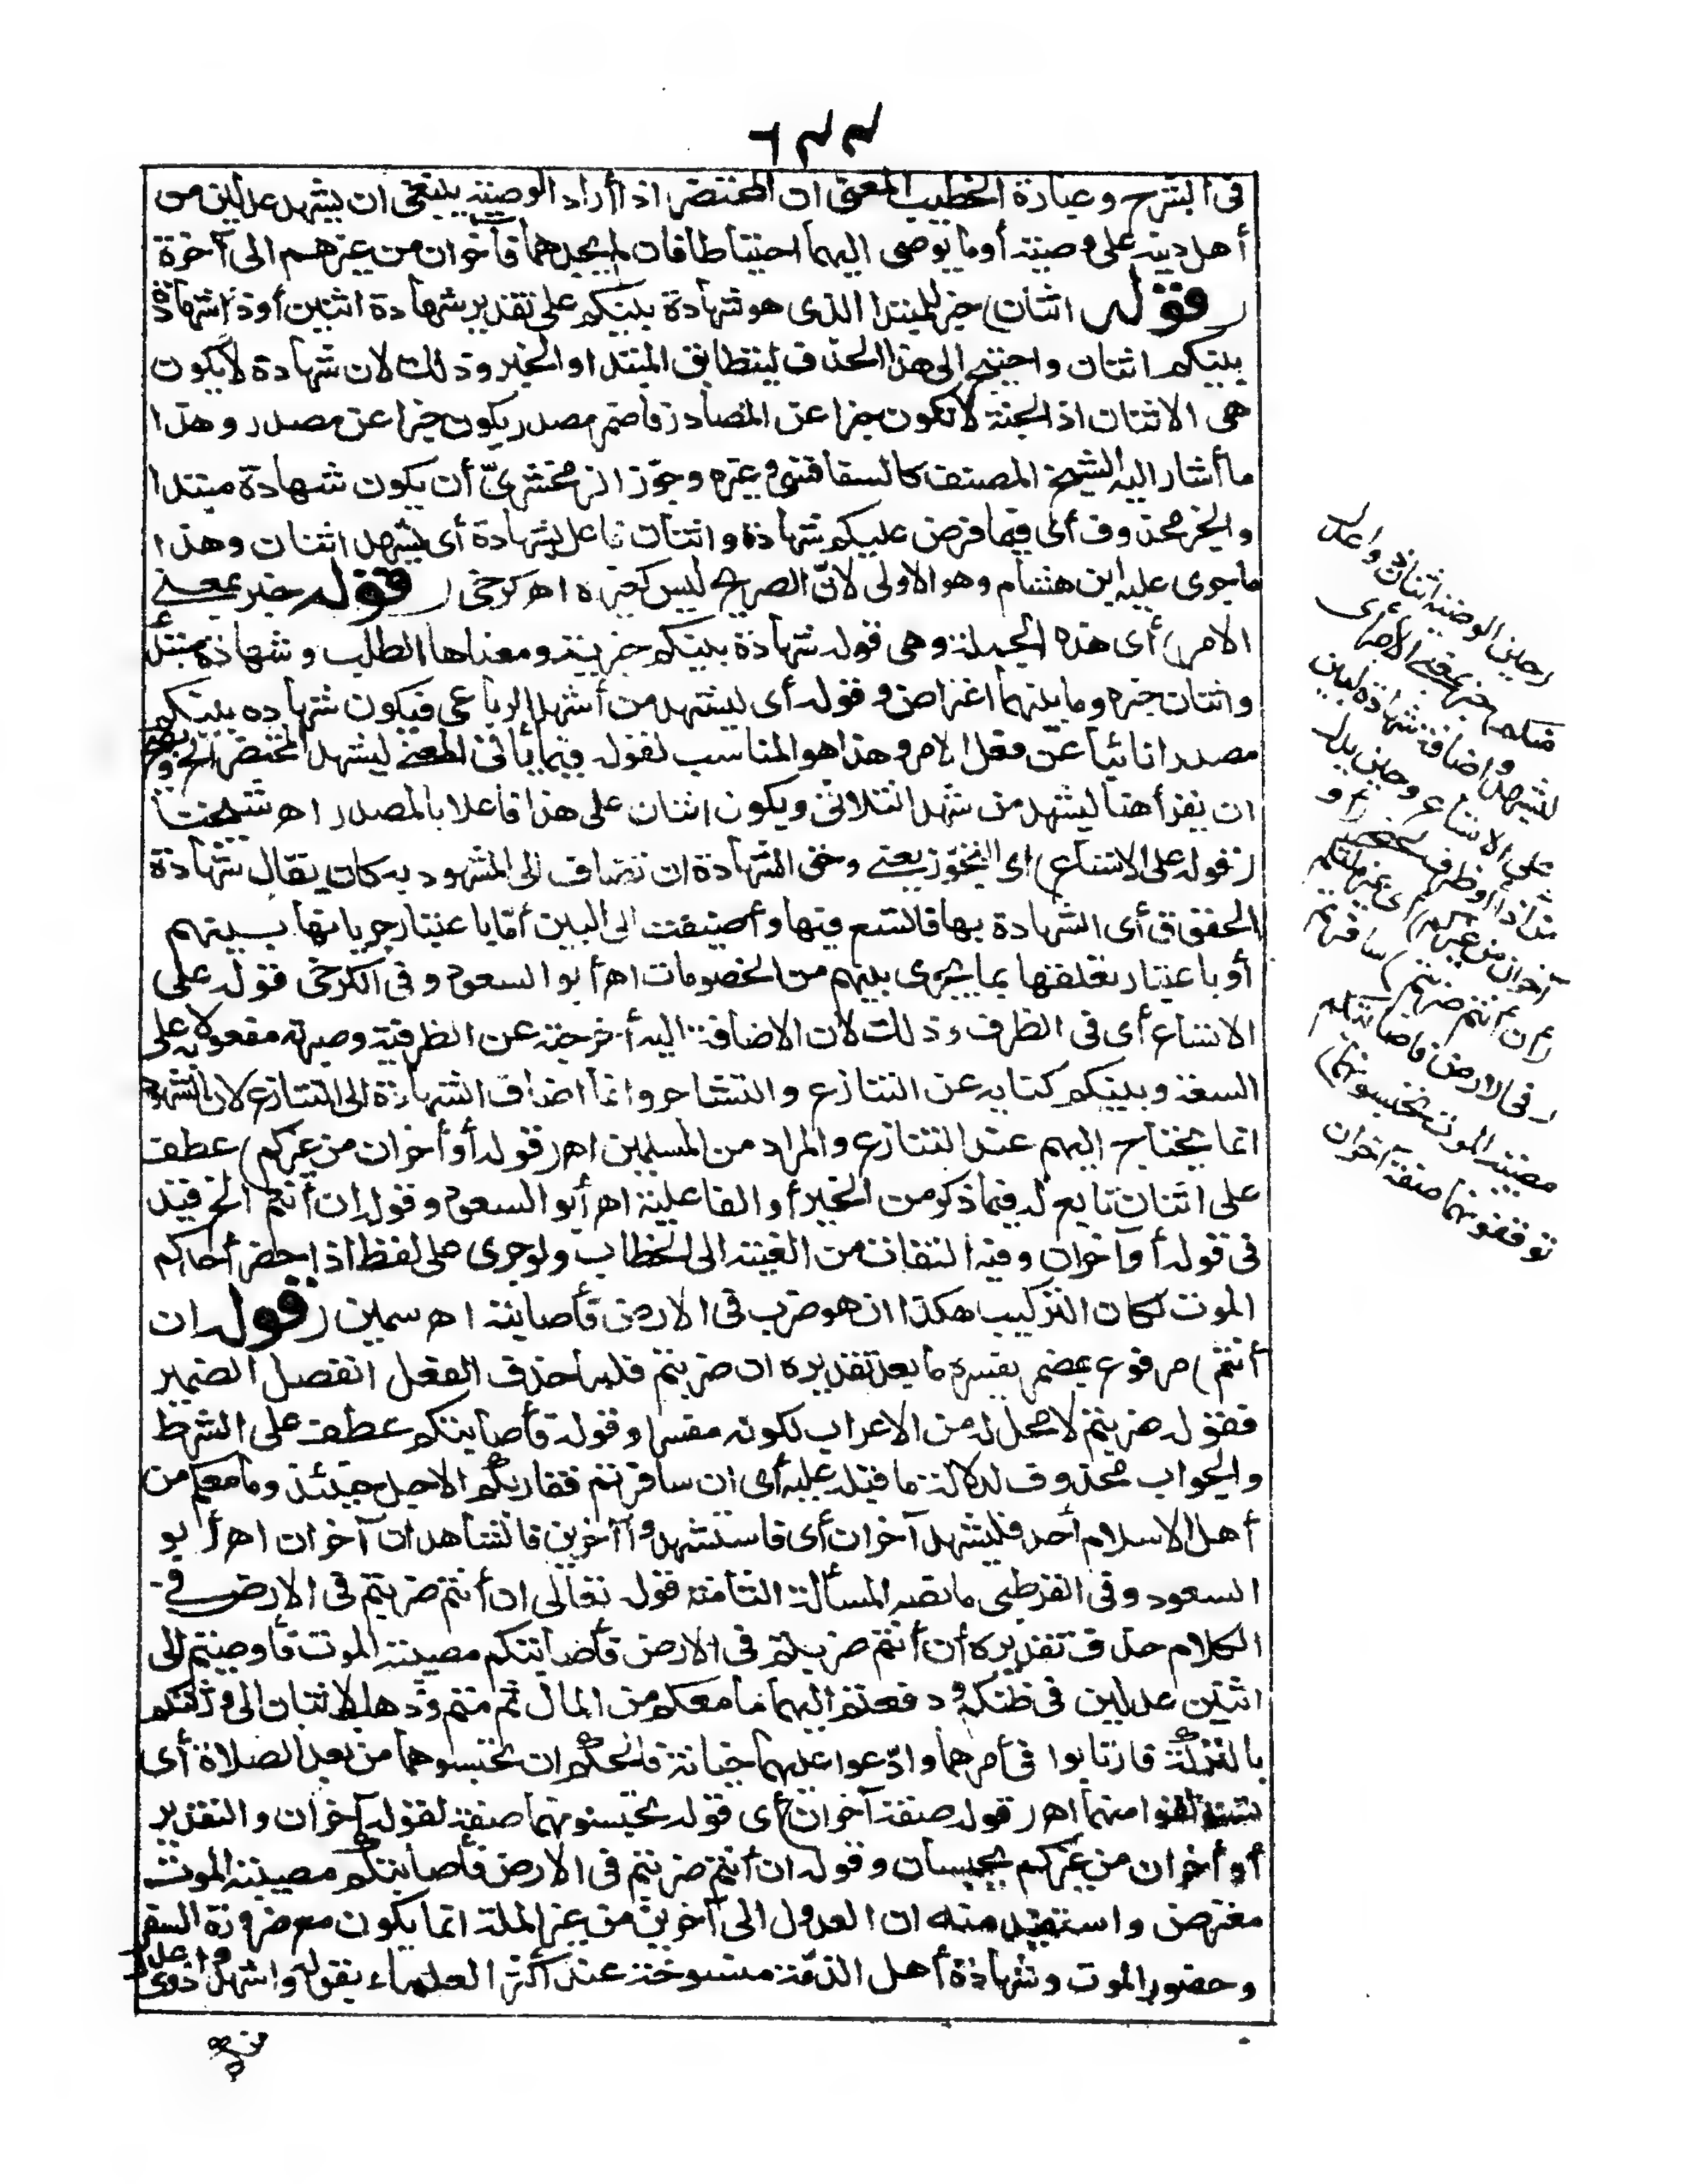 في الشرح وعبارة الخطيب المعنى ان المحتضر اذا أراد الوصية ينبغي ان يشهد عدلين من
أهل دينه على وصيته أو ما يوصى اليهما احتياطا فان لم يجدهما فآخران من غيرهم الى آخره
(قوله اثنان) خبر للمبتدا الذى هو شهادة بينكم على تقدير شهادة اثنين أو ذا شهادة
بينكم اثنان واحتيج الى هذا الحذف ليتطابق المبتدا والخبر وذلك لان شهادة لا تكون
هى الاثنان اذ الجثة لا تكون خبرا عن المصادر فاضمر مصدر يكون خبرا عن مصدر وهذا
ما أشار اليه الشيخ المصنف كالسفاقسى وغيره وجوّز الزمخشرىّ أن يكون شهادة مبتدا
والخبر محذوف أى فيما فرض عليكم شهادة واثنان فاعل بشهادة أى يشهد اثنان وهذا
ما جرى عليه ابن هشام وهو الاولى لانّ الصريح ليس كغيره اهـ كرخى (قوله خبر بمعنى
الامر) أى هذه الجملة وهى قوله شهادة بينكم خبرية ومعناها الطلب وشهادة مبتدأ
واثنان خبره وما بينهما اعتراض وقوله أى ليشهد من أشهد الرباعى فيكون شهاده بينكم
مصدرا نائبا عن فعل الامر وهذا هو المناسب لقوله فيما يأتى المعنى ليشهد المحتضر الخ ويصح
ان يقرأ هنا ليشهد من شهد الثلاثى ويكون اثنان على هذا فاعلا بالمصدر اهـ شيخنا
(قوله على الاتساع) اى التجوّز يعنى وحق الشهادة ان تضاف الى المشهود به كان يقال شهادة
الحقوق أى الشهادة بها فاتسع فيها وأضيفت الى البين أمّا باعتبار جريانها بينهم
أو باعتبار تعلقها بما يجرى بينهم من الخصومات اهـ أبو السعود وفى الكرخى قوله على
الاتساع أى فى الظرف وذلك لان الاضافة اليه أخرجته عن الظرفية وصيرته مفعولا به على
السعة وبينكم كناية عن التنازع والتشاجر وانما اضاف الشهادة الى التنازع لان الشهود
انما يحتاج اليهم عند التنازع والمراد من المسلمين اهـ (قوله أو آخران من غيركم) عطف
على اثنان تابع له فيما ذكر من الخبر أو الفاعلية اهـ أبو السعود وقوله ان أنتم الخ قيد
فى قوله أو آخران وفيه التفات من الغيبة الى الخطاب ولو جرى على لفظ اذا حضر أحدكم
الموت لكان التركيب هكذا ان هو ضرب فى الارض فأصابته اهـ سمين (قوله ان
أنتم) مرفوع بمضمر يفسره ما بعد تقديره ان ضربتم فلما حذف الفعل انفصل الضمير
فقوله ضربتم لا محل له من الاعراب لكونه مفسرا وقوله فأصابتكم عطف على الشرط
والجواب محذوف لدلالة ما قبله عليه أى ان سافرتم فقاربكم الاجل حينئذ وما معكم من
أهل الاسلام أحد فليشهد آخران أى فاستشهدوا آخرين فالشاهدان آخران اهـ أبو
السعود وفى القرطبى ما نصه المسألة الثامنة قوله تعالى ان أنتم ضربتم فى الارض فى
الكلام حذف تقديره أن أنتم ضربتم فى الارض فأصابتكم مصيبة الموت فأوصيتم الى
اثنين عدلين فى ظنكم ودفعتم اليهما ما معكم من المال ثم متم وذهب الاثنان الى ورثتكم
بالتركة فارتابوا فى أمرهما وادّعوا عليهما خيانة فالحكم ان تحبسوهما من بعد الصلاة أى
تستوثقوا منهما اهـ (قوله صفة آخران) أى قوله تحبسونهما صفة لقوله آخران والتقدير
أو آخران من غيركم يحبسان وقوله ان أنتم ضربتم فى الارض فأصابتكم مصيبة الموت
معترض واستفيد منه ان العدول الى آخرين من غير الملة انما يكون مع ضرورة السفر
وحضور الموت وشهادة أهل الذمّة منسوخة عند أكثر العلماء بقوله واشهدوا ذوى عدل
(حين الوصية اثنان ذوا عدل
منكم) خبر بمعنى الامر أى
ليشهد واضافة شهادة لبين
على الاتساع وحين بدل
من اذا أو ظرف لحضر (أو
آخران من غيركم) أى غير ملتكم
(ان أنتم ضربتم) سافرتم
(فى الارض فأصابتكم
مصيبة الموت تحبسونهما)
توقفونهما صفة آخران